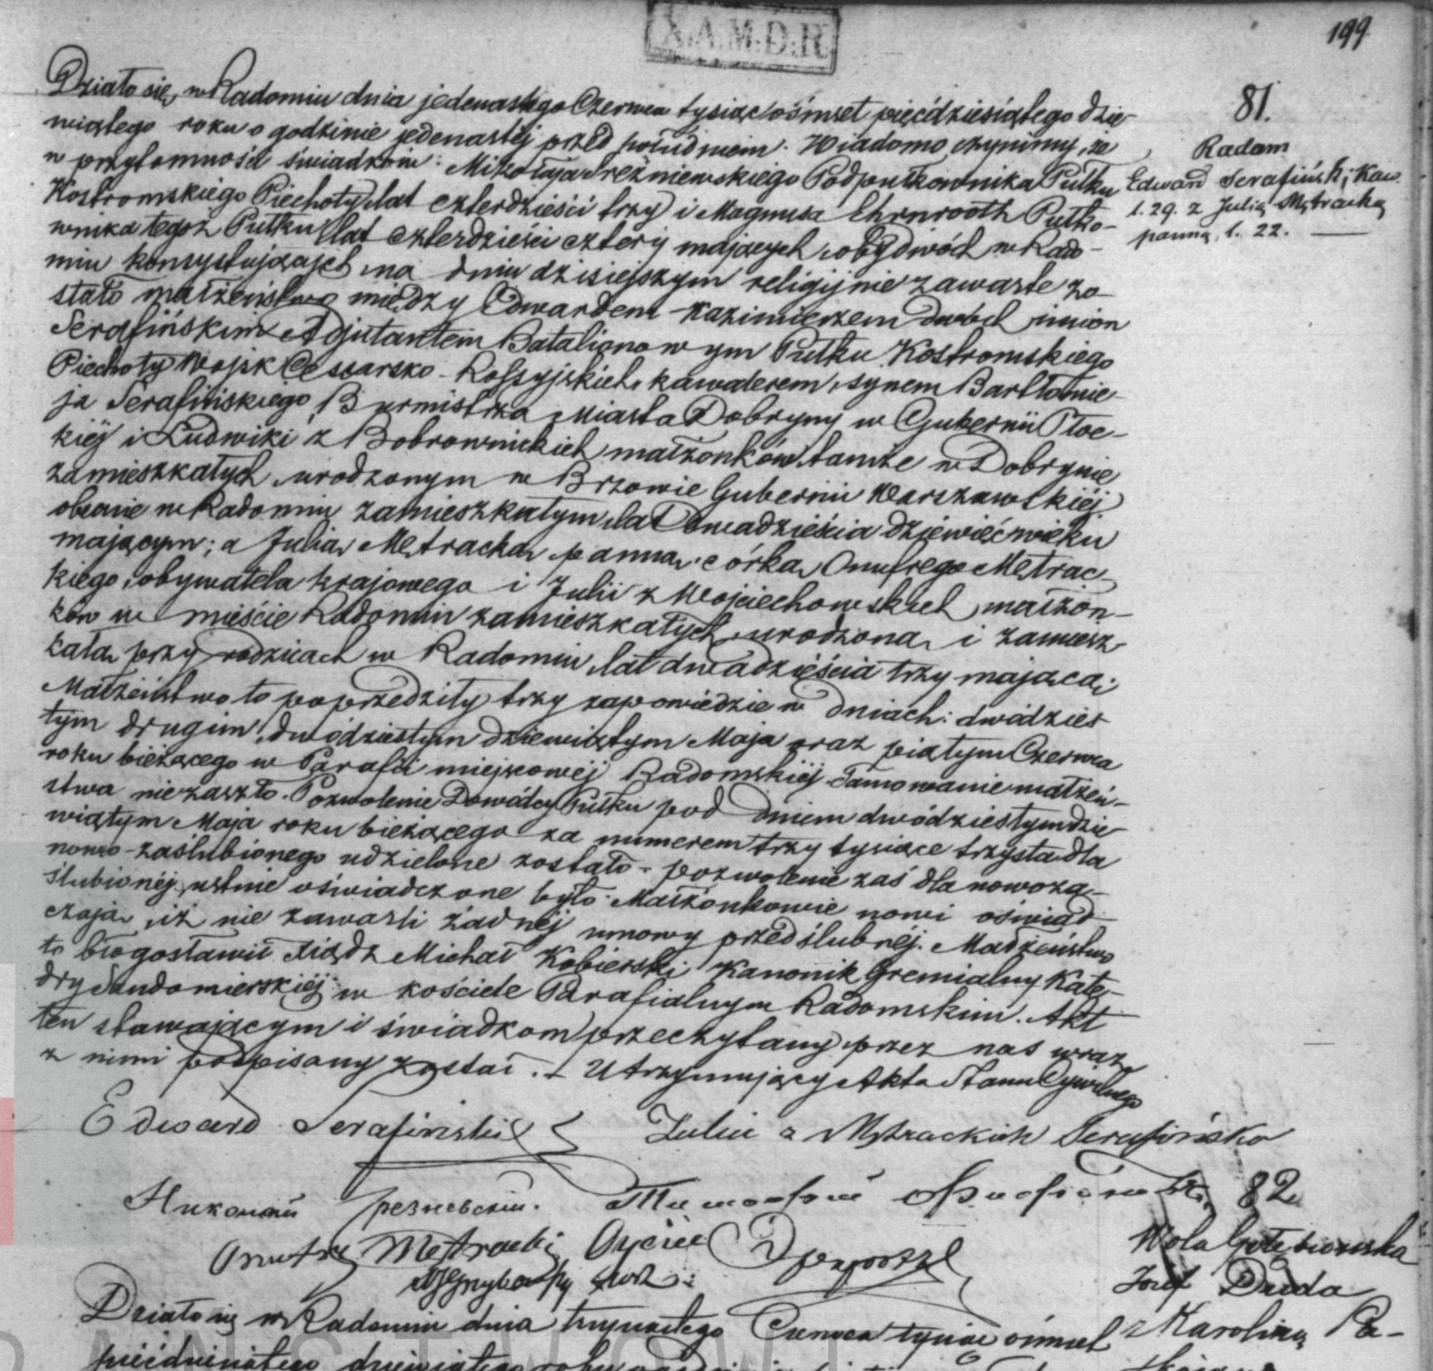 X.A.M.D.R
199
Działo się w Radomiu dnia jedenastego Czerwca tysiąc ośmset pięćdziesiątego dzie-
wiątego roku o godzinie jedenastej przed południem. Wiadomo czynimy, że
w przytomności świadków: Mikołaja Sreźniewskiego Podpułkownika Pułku
Kostromskiego Piechoty lat czterdzieści trzy i Magnusa Ehrnrooth Pułko-
wnika tegoż Pułku lat czterdzieści cztery mających, obydwóch w Rado-
miu konsystujących, na dniu dzisiejszym religijnie zawarte zo-
stało małżeństwo między Edwardem Kazimierzem dwóch imion
Serafińskim Adjutantem Batalionowym Pułku Kostromskiego
Piechoty Wojsk Cesarsko-Rossyjskich, kawalerem, synem Bartłomie-
ja Serafińskiego Burmistrza Miasta Dobrzyny w Gubernii Płoc-
kiéj i Ludwiki z Bobrownickich małżonków, tamże w Dobrzynie
zamieszkałych, urodzonym w Gubernii Warszawskiéj
obecnie w Radomiu zamieszkałym, lat dwadzieścia dziewięć wieku
mającym; a Julią Mętracką, panną, córką Onufrego Mętrac-
kiego, obywatela krajowego i Julii z Wojciechowskich, małżon-
ków w mieście Radomiu zamieszkałych, urodzoną i zamiesz-
kałą przy rodzicach w Radomiu, lat dwadzieścia trzy mającą;
Małżeństwo to poprzedziły trzy zapowiedzie w dniach: dwódzies-
tym drugim, dwódziestym dziewiątym Maja oraz piątym Czerwca
roku bieżącego w Parafii miejscowéj Radomskiéj. Tamowanie małżeń-
stwa nie zaszło. Pozwolenie Dowódcy Pułku pod dniem dwódziestym dzie-
wiątym Maja roku bieżącego za numerem trzy tysiące trzysta dla
nowo-zaślubionego udzielone zostało – pozwolenie zaś dla nowoza-
ślubionéj ustnie oświadczone było. Małżonkowie nowi oświad-
czają, iż nie zawarli żadnéj umowy przedślubnéj. Małżeństwo
to błogosławił Ksiądz Michał Kobierski Kanonik Gremialny Kate-
dry Sandomierskiéj w kościele Parafialnym Radomskim. Akt
ten stawającym i świadkom przeczytany, przez nas wraz
z nimi podpisany został. – Utrzymujący Akta Stanu Cywilnego
Edward Serafiński
Julia z Mętrackich Serafińska
Onufry Mętracki Ojciec
81.
Radom
Edward Serafiński, Kaw.
l. 29. z Julią Mętracką
panną, l. 22.
82
Wola Gołębiowska
Józef Duda
z Karoliną Pa-
Działo się w Radomiu dnia trzynastego Czerwca tysiąc ośmset
pięćdziesiątego dziewiątego roku